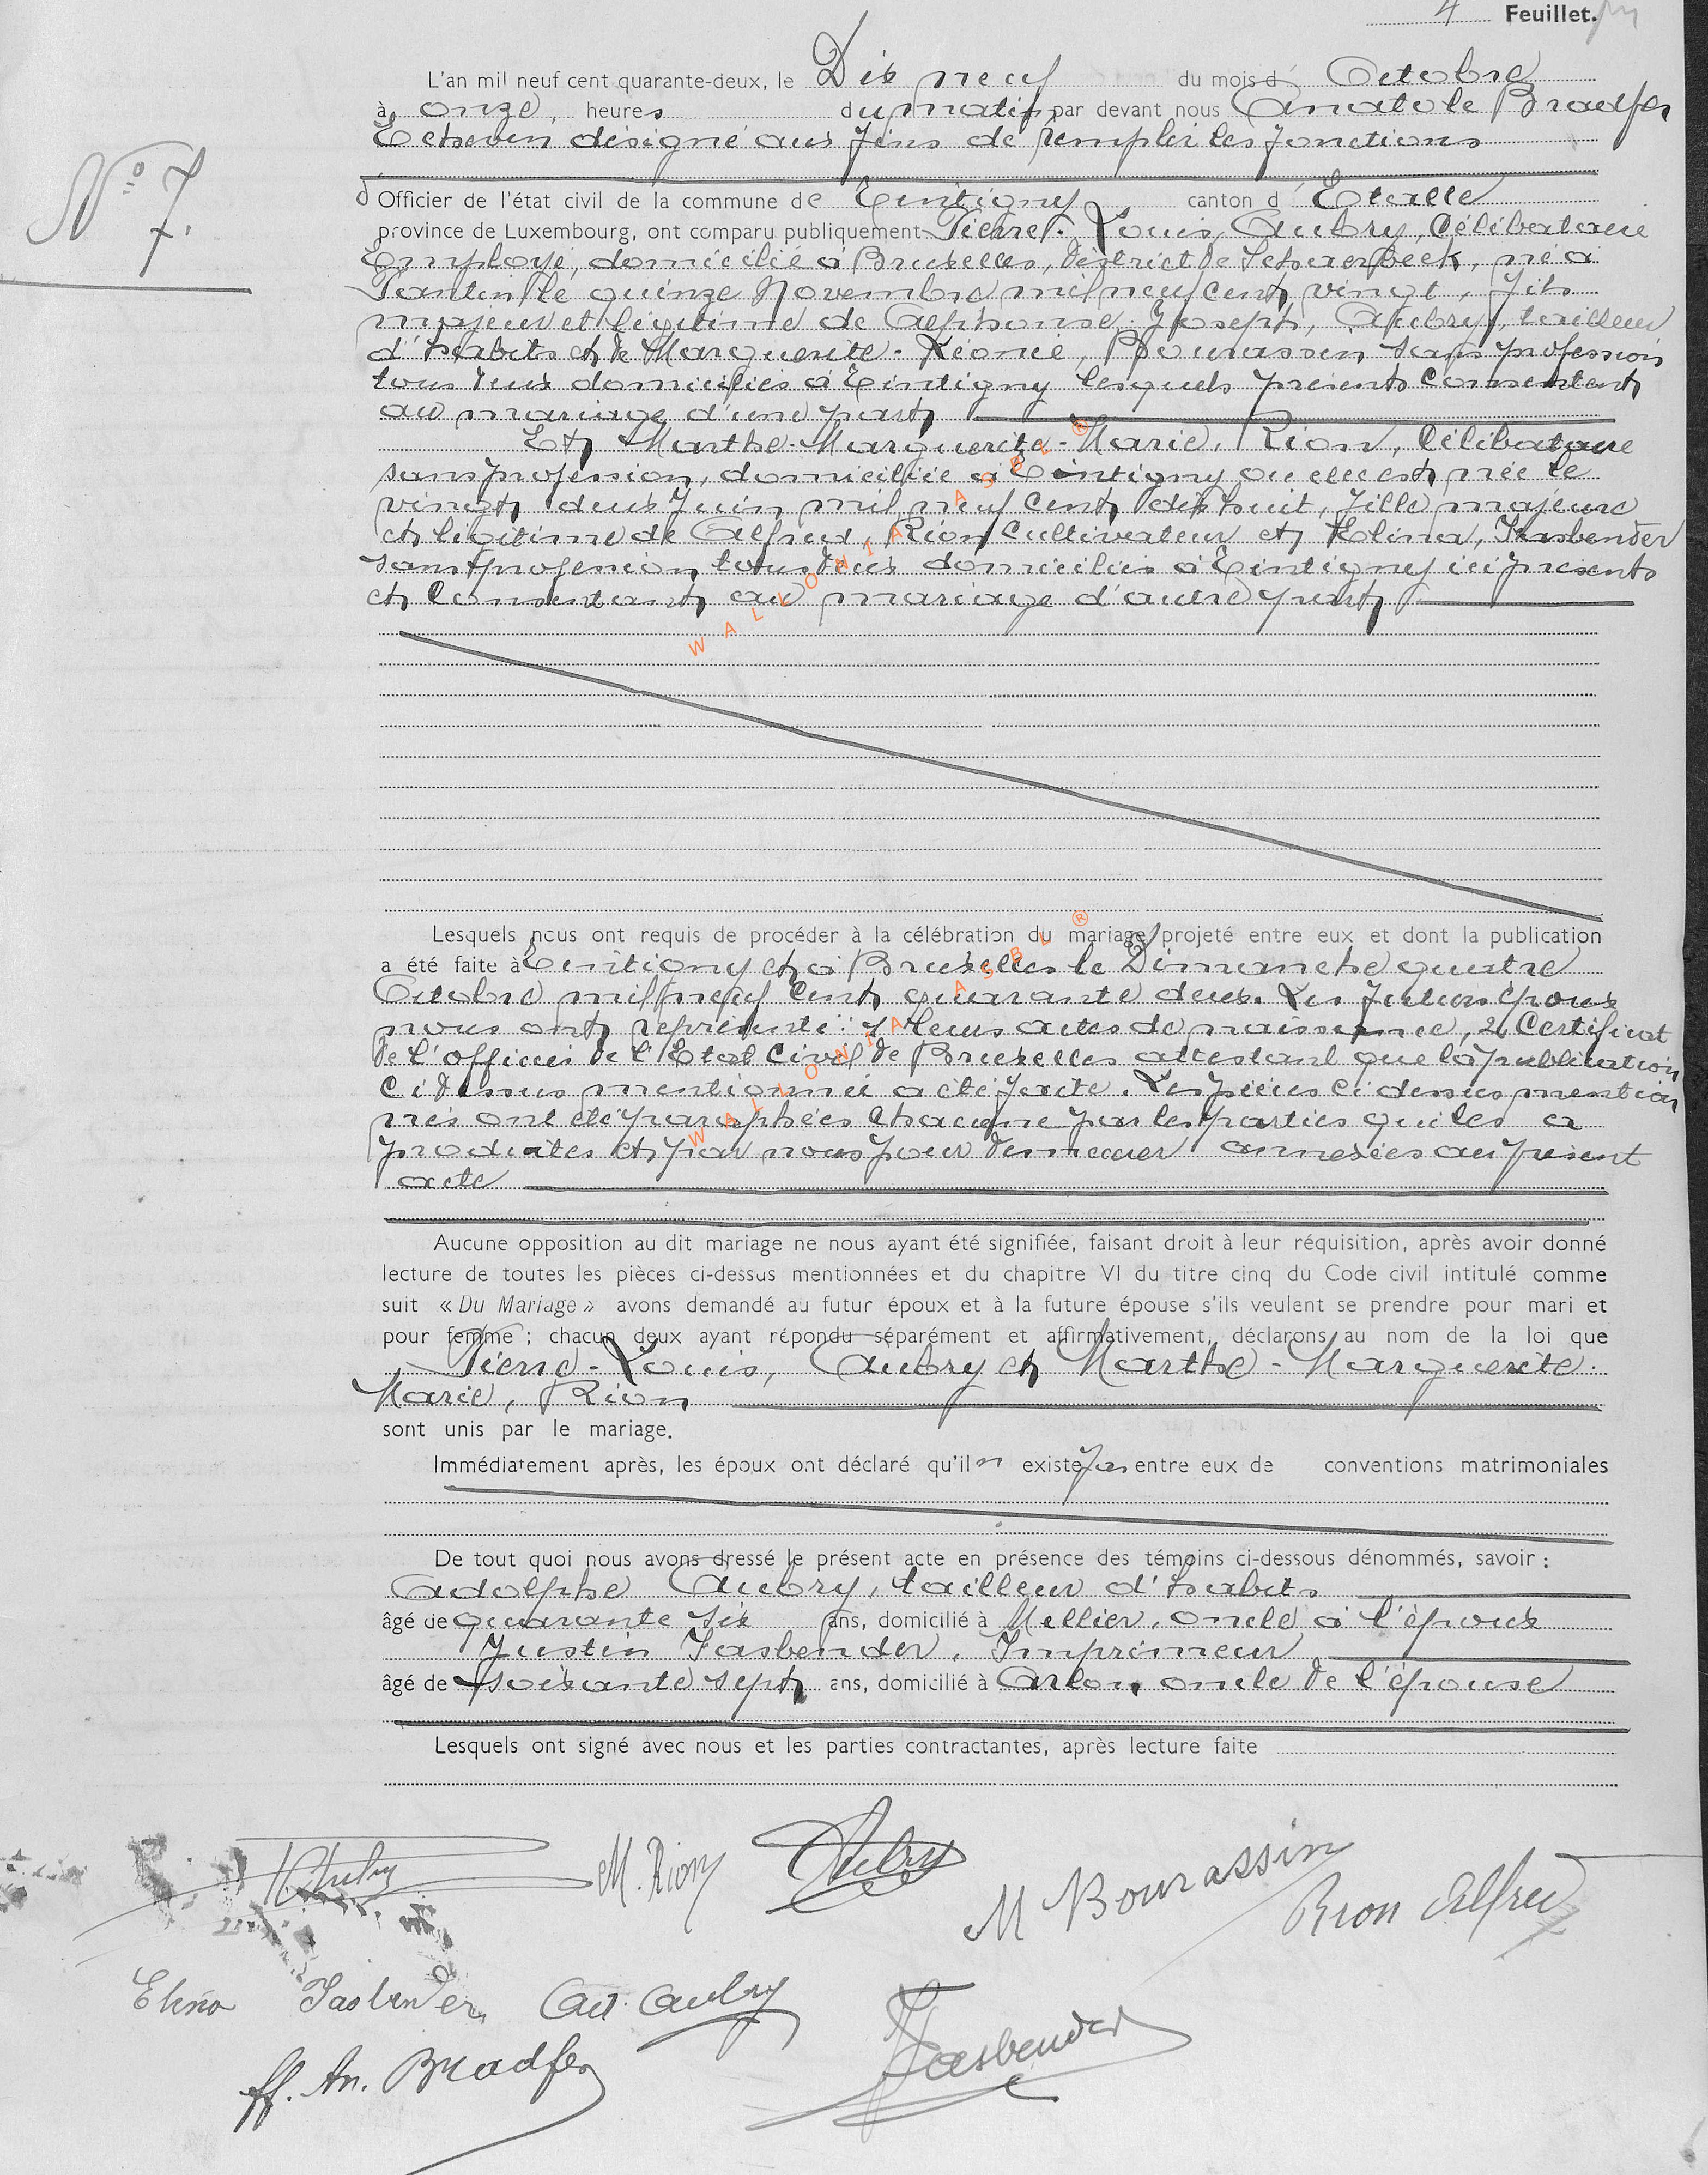 4 Feuillet.
L'an mil neuf cent quarante-deux, le Dix neuf du mois d' Octobre
à onze, heures du matin par devant nous Anatole Bradfer
Echevin désigné aux fins de remplir les fonctions
d'Officier de l'état civil de la commune de Tintigny canton d' Etalle
province de Luxembourg, ont comparu publiquement Pierre-Louis, Aubry, Célibataire
Employé, domicilié à Bruxelles, district de Schaerbeek, né à
le quinze Novembre mil neuf cent vingt, fils
majeur et légitime de Alphonse-Joseph, Aubry, tailleur
d'habits et de Marguerite-Léonie, Bourassin sans profession
tous deux domiciliés à Tintigny lesquels présents consentent
au mariage d'une part
Nº 7.
Et Marthe-Marguerite-Marie, Rion, Célibataire
sans profession, domiciliée à Tintigny où elle est née le
vingt deux Juin mil neuf cent dix huit, fille majeure
et légitime de Alfred, Rion Cultivateur et Elina, Fasbender
sans profession tous deux domiciliés à Tintigny ici présents
et consentant au mariage d'autre part
WALLONIA ASBL ®
Lesquels nous ont requis de procéder à la célébration du mariage projeté entre eux et dont la publication
a été faite à Tintigny et à Bruxelles le Dimanche quatre
Octobre mil neuf cent quarante deux. Les futurs époux
nous ont représenté: 1 leurs actes de naissance, 2 Certificat
de l'officier de l'Etat Civil de Bruxelles attestant que la publication
ci dessus mentionnée a été faite. Les pièces ci dessus mention
nés ont été paraphées chacune par les parties qui les a
produites et par nous pour demeurer annexées au présent
acte
WALLONIA ASBL ®
Aucune opposition au dit mariage ne nous ayant été signifiée, faisant droit à leur réquisition, après avoir donné
lecture de toutes les pièces ci-dessus mentionnées et du chapitre VI du titre cinq du Code civil intitulé comme
suit « Du Mariage » avons demandé au futur époux et à la future épouse s'ils veulent se prendre pour mari et
pour femme ; chacun deux ayant répondu séparément et affirmativement, déclarons au nom de la loi que
Pierre-Louis, Aubry et Marthe-Marguerite-
Marie, Rion
sont unis par le mariage.
Immédiatement après, les époux ont déclaré qu'il n' existe pas entre eux de conventions matrimoniales
De tout quoi nous avons dressé le présent acte en présence des témoins ci-dessous dénommés, savoir :
Adolphe Aubry, tailleur d'habits
âgé de quarante six ans, domicilié à Mellier, oncle à l'époux
Justin Fasbender, Imprimeur
âgé de soixante sept ans, domicilié à Arlon, oncle de l'épouse
Lesquels ont signé avec nous et les parties contractantes, après lecture faite
Aubry M. Rion Aubry M Bourassin Rion Alfred
Elina Fasbender Ad. Aubry Fasbender
ff. An. Bradfer